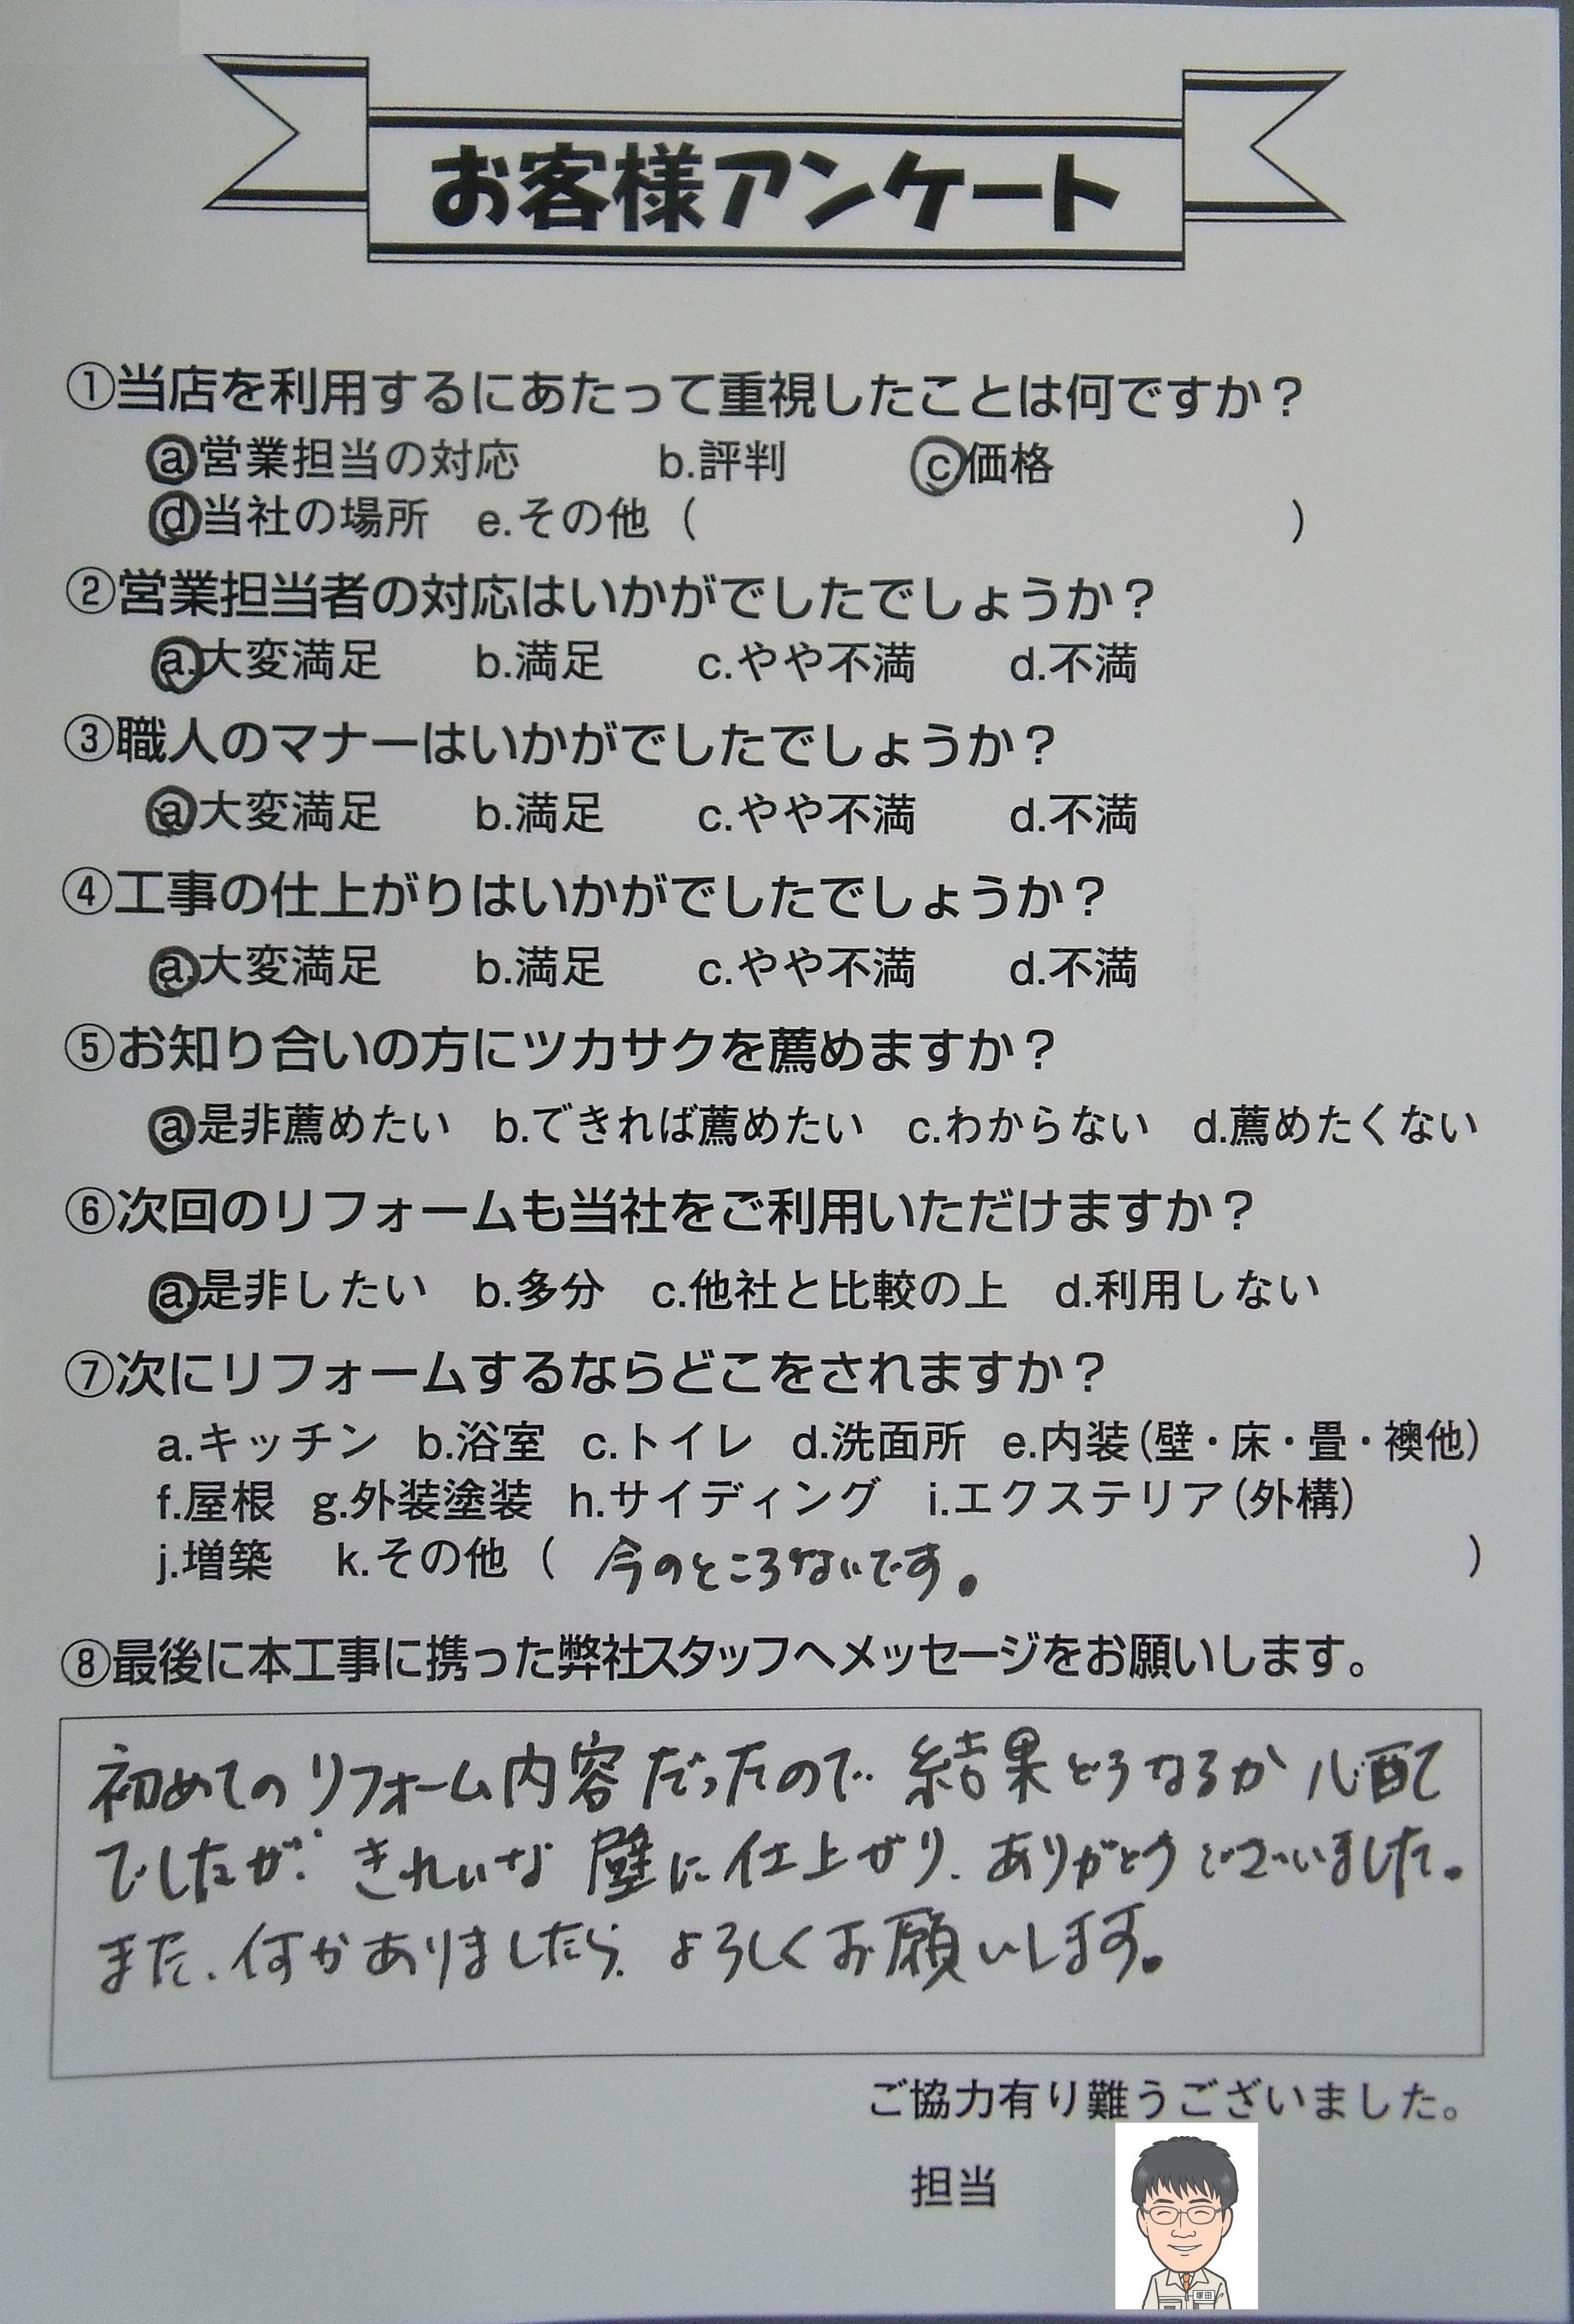 お客様アンケート
①当店を利用するにあたって重視したことは何ですか？
a営業担当の対応 b.評判 c価格
d当社の場所 e.その他（ ）
②営業担当者の対応はいかがでしたでしょうか？
a.大変満足 b.満足 c.やや不満 d.不満
③職人のマナーはいかがでしたでしょうか？
a大変満足 b.満足 c.やや不満 d.不満
④工事の仕上がりはいかがでしたでしょうか？
a.大変満足 b.満足 c.やや不満 d.不満
⑤お知り合いの方にツカサクを薦めますか？
a是非薦めたい b.できれば薦めたい c.わからない d.薦めたくない
⑥次回のリフォームも当社をご利用いただけますか？
a.是非したい b.多分 c.他社と比較の上 d.利用しない
⑦次にリフォームするならどこをされますか？
a.キッチン b.浴室 c.トイレ d.洗面所 e.内装（壁・床・畳・襖他）
f.屋根 g.外装塗装 h.サイディング i.エクステリア（外構）
j.増築 k.その他（ 今のところないです。 ）
⑧最後に本工事に携った弊社スタッフへメッセージをお願いします。
初めてのリフォーム内容だったので 結果どうなるか心配で
でしたが、きれいな壁に仕上がり、ありがとうございました。
また、何かありましたら、よろしくお願いします。
ご協力有り難うございました。
担当
塚田